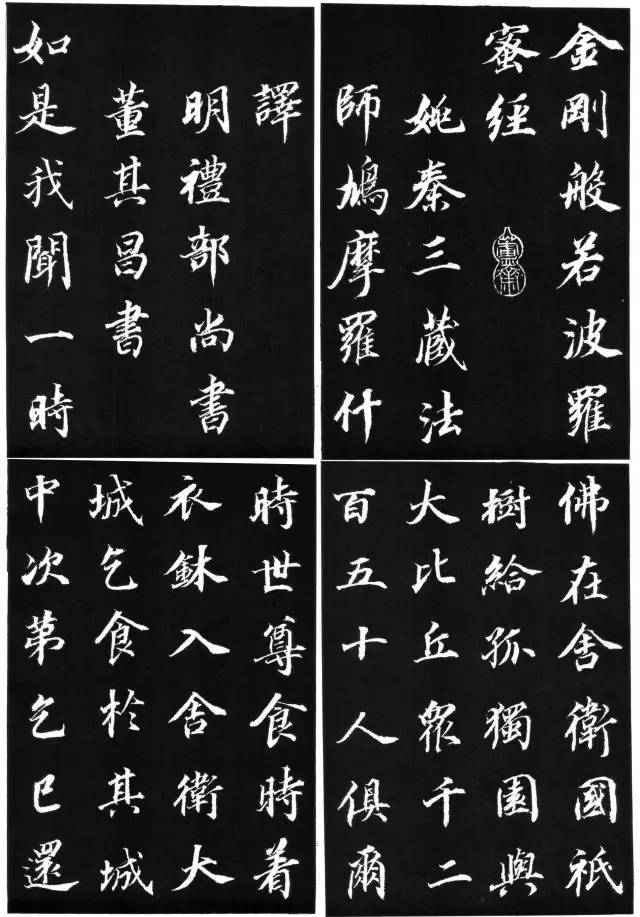 金剛般若波羅
蜜經
姚秦三藏法
師鳩摩羅什
譯
明禮部尚書
董其昌書
如是我聞一時
佛在舍衛國祇
樹給孤獨園與
大比丘眾千二
百五十人俱爾
時世尊食時着
衣鉢入舍衛大
城乞食於其城
中次第乞已還